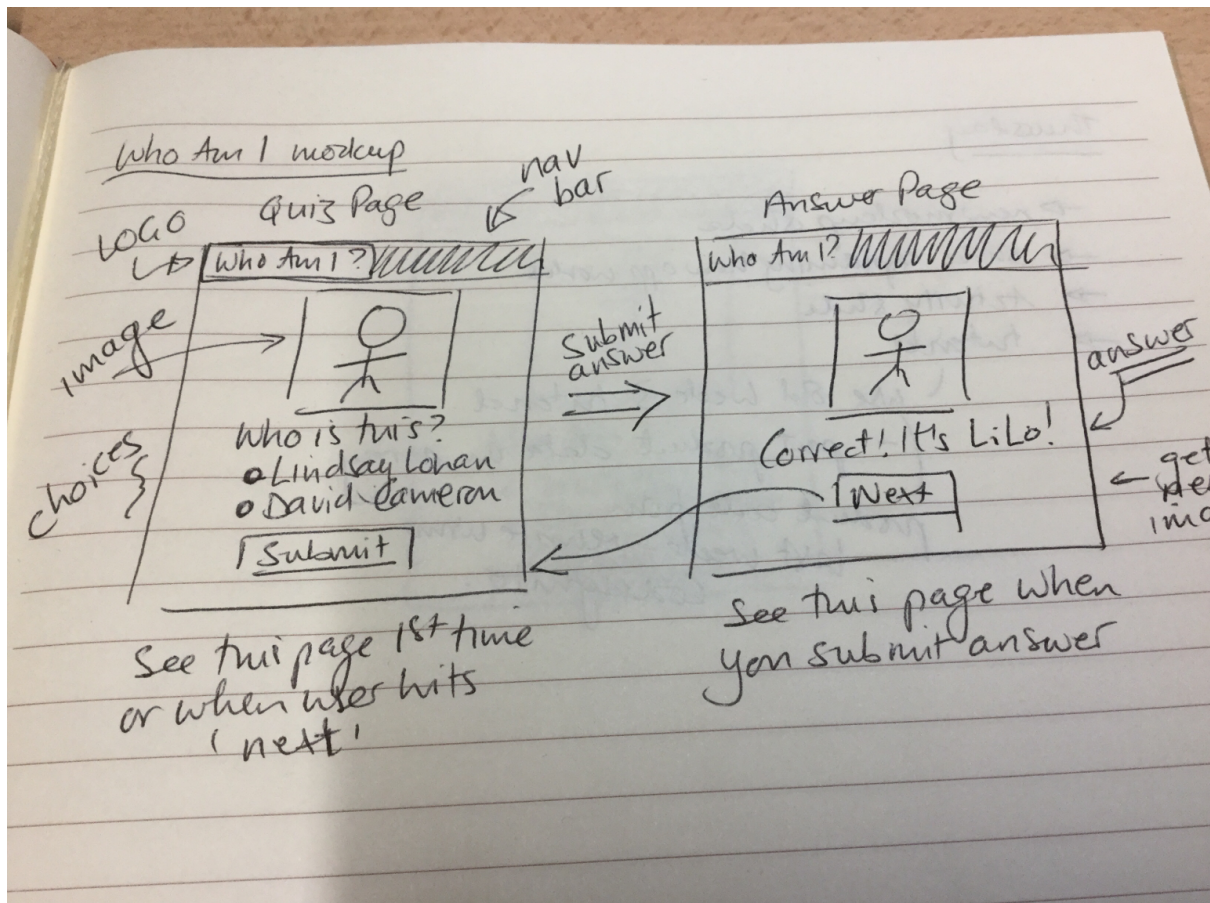 Who Am I mockup
Quiz Page
nav
bar
LOGO
Who Am I?
image
Who is this?
choices
Lindsay Lohan
David Cameron
Submit
See this page 1st time
or when user hits
'next'
Submit
answer
Answer Page
Who Am I?
answer
Correct! It's LiLo!
Next
get
See this page when
you submit answer
Thursday